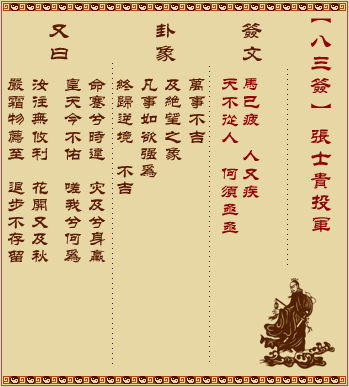 【八三簽】 張士貴投軍
簽文
馬已疲 人又疾
天不從人 何須亟亟
卦象
萬事不吉
及絕望之象
凡事如欲強為
終歸逆境 不吉
又曰
命蹇兮時違 災及兮身羸
皇天今不佑 嗟我兮何為
汝往無攸利 花開又及秋
嚴霜物薦至 退步不存留